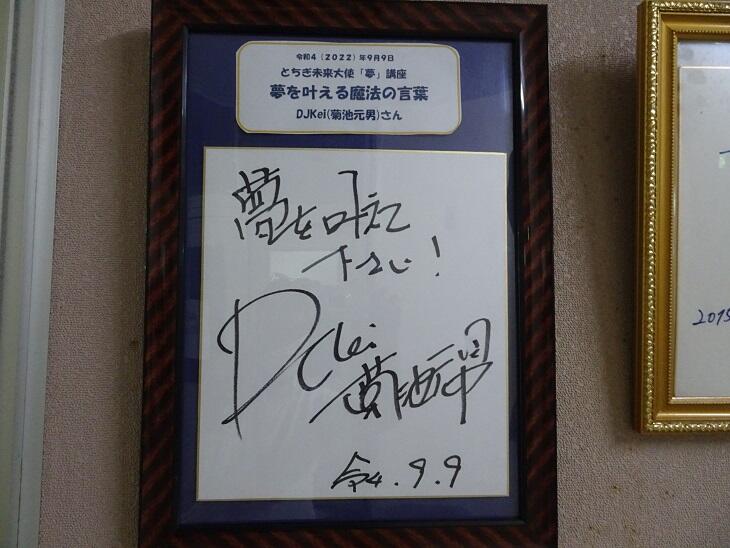 令和4（2022）年9月9日
とちぎ未来大使「夢」講座
夢を叶える魔法の言葉
DJKei(菊池元男)さん
夢を叶えて
下さい!
DJKei
菊池元男
令4.9.9
2015